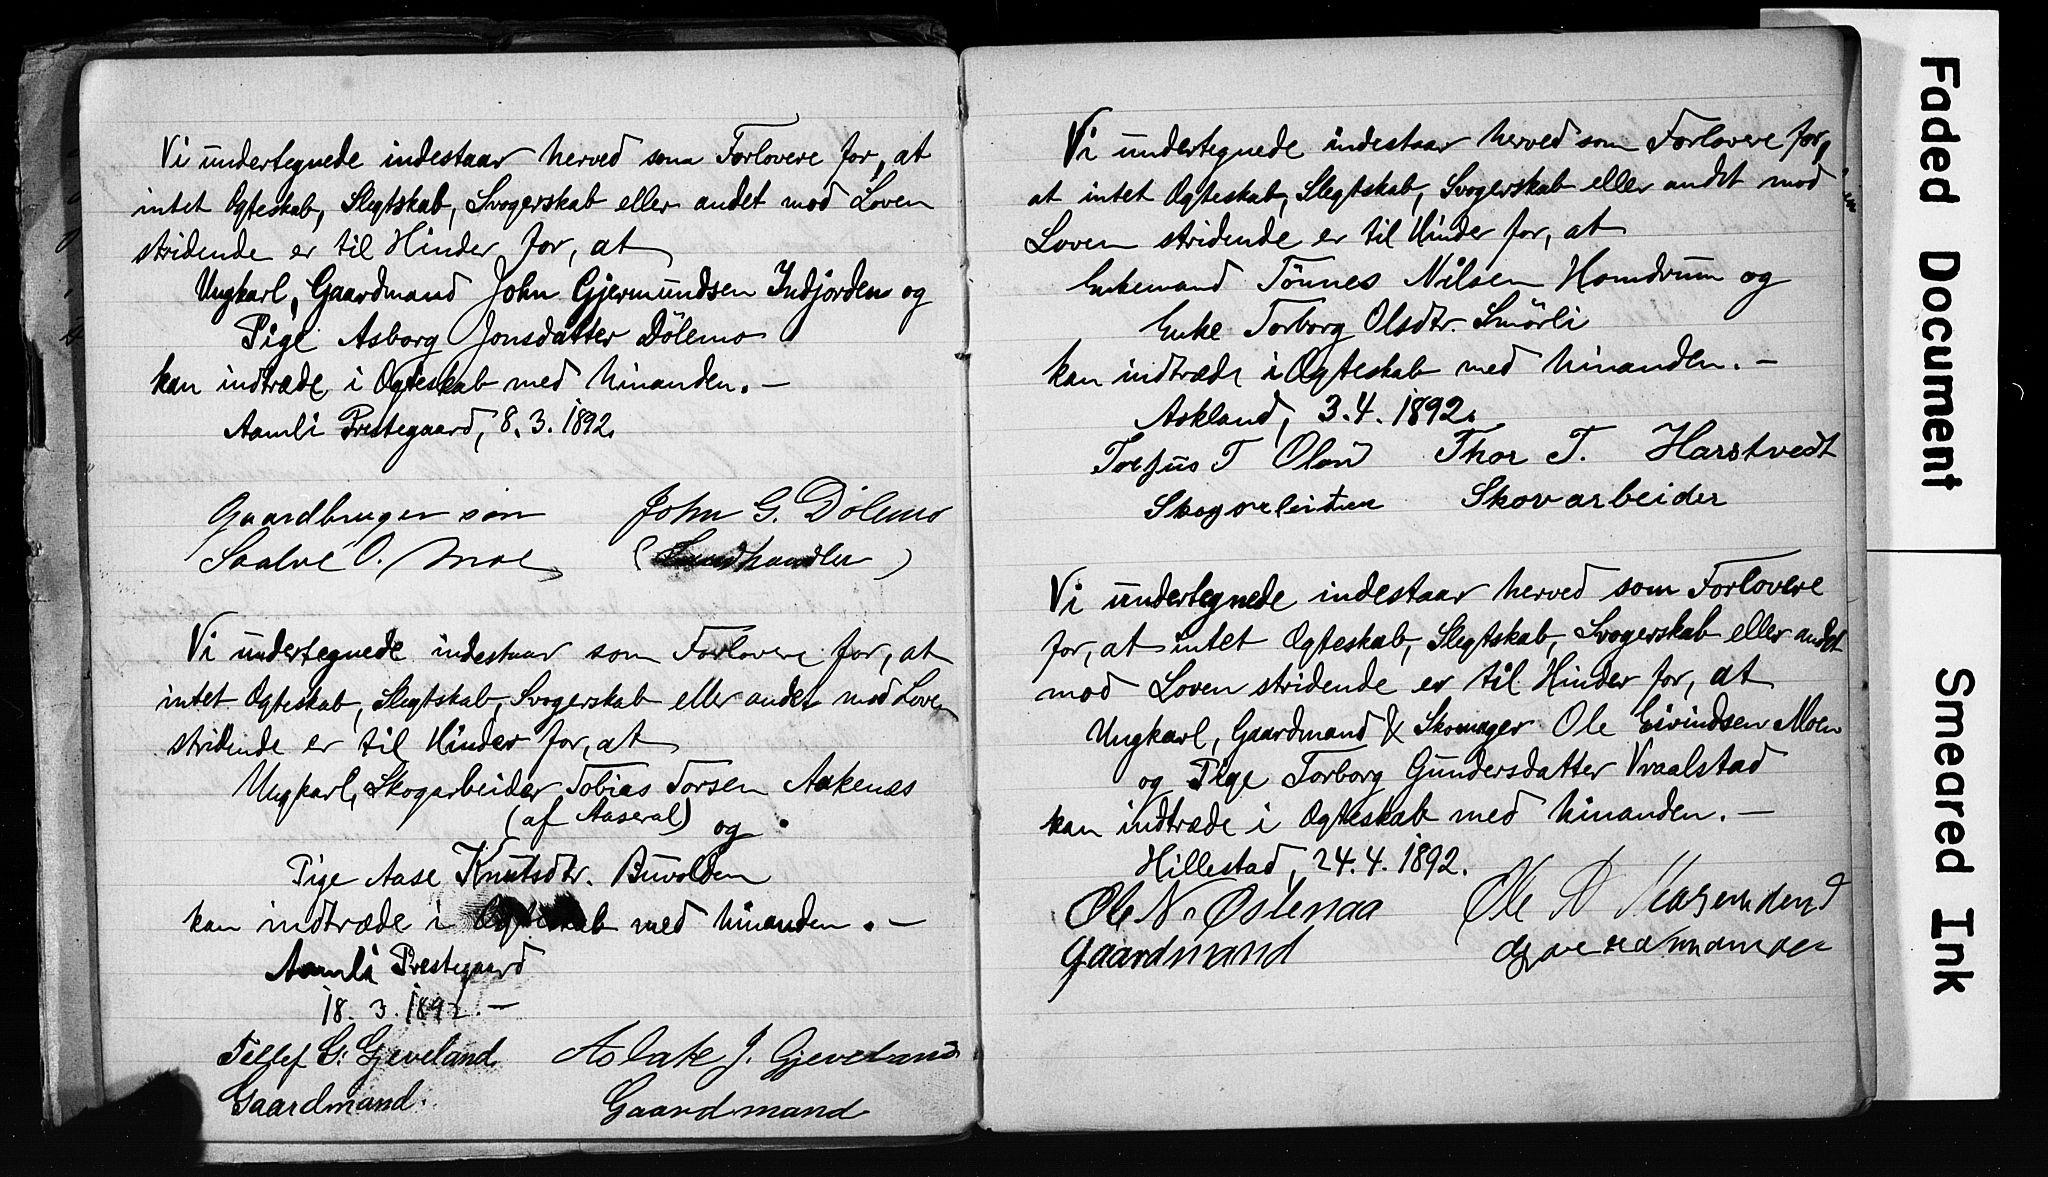 Vi undertegnede indestaar herved som Forlovere for, at
intet Ogteskab, Slegtskab, Svogerskab eller andet mod Loven
stridende er til Hinder for, at
Ungkarl, Gaardmand John Gjermundsen Indjorden og
Pige Asborg Jonsdatter Dölemo
kan indtræde i Ogteskab med hinanden. —
Aamli Prestegaard, 8.3.1892.
Gaardbruger sön John G. Dölemo
Saalve O. Moe (Landhandler)
Vi undertegnede indestaar som Forlovere for, at
intet Ogteskab, Slegtskab, Svogerskab eller andet mod Loven
stridende er til Hinder for, at
Ungkarl, Skogarbeider Tobias Torsen Aakenæs
(af Aaseral) og
Pige Aase Knutsdtr. Buvolden
kan indtræde i Ogteskab med hinanden. —
Aamli Prestegaard
18.3.1892. —
Tellef G. Gjeveland Aslak J. Gjeveland
Gaardmand. Gaardmand
Vi undertegnede indestaar herved som Forlovere for,
at intet Ogteskab, Slegtskab, Svogerskab eller andet mod
Loven stridende er til Hinder for, at
Enkemand Tönnes Nilsen Homdrum og
Enke Torborg Olsdtr. Smörli
kan indtræde i Ogteskab med hinanden. —
Askland, 3.4.1892.
Torjus T Thor T. Harstvedt
Skovarbeider
Vi undertegnede indestaar herved som Forlovere
for, at intet Ogteskab, Slegtskab, Svogerskab eller andet
mod Loven stridende er til Hinder for, at
Ungkarl, Gaardmand & Skomager Ole Eivindsen Moen
og Pige Torborg Gundersdatter Vraalstad
kan indtræde i Ogteskab med hinanden. —
Hillestad, 24.4.1892.
Ole N. Östenaa Ole
Gaardmand
Faded Document
Smeared Ink